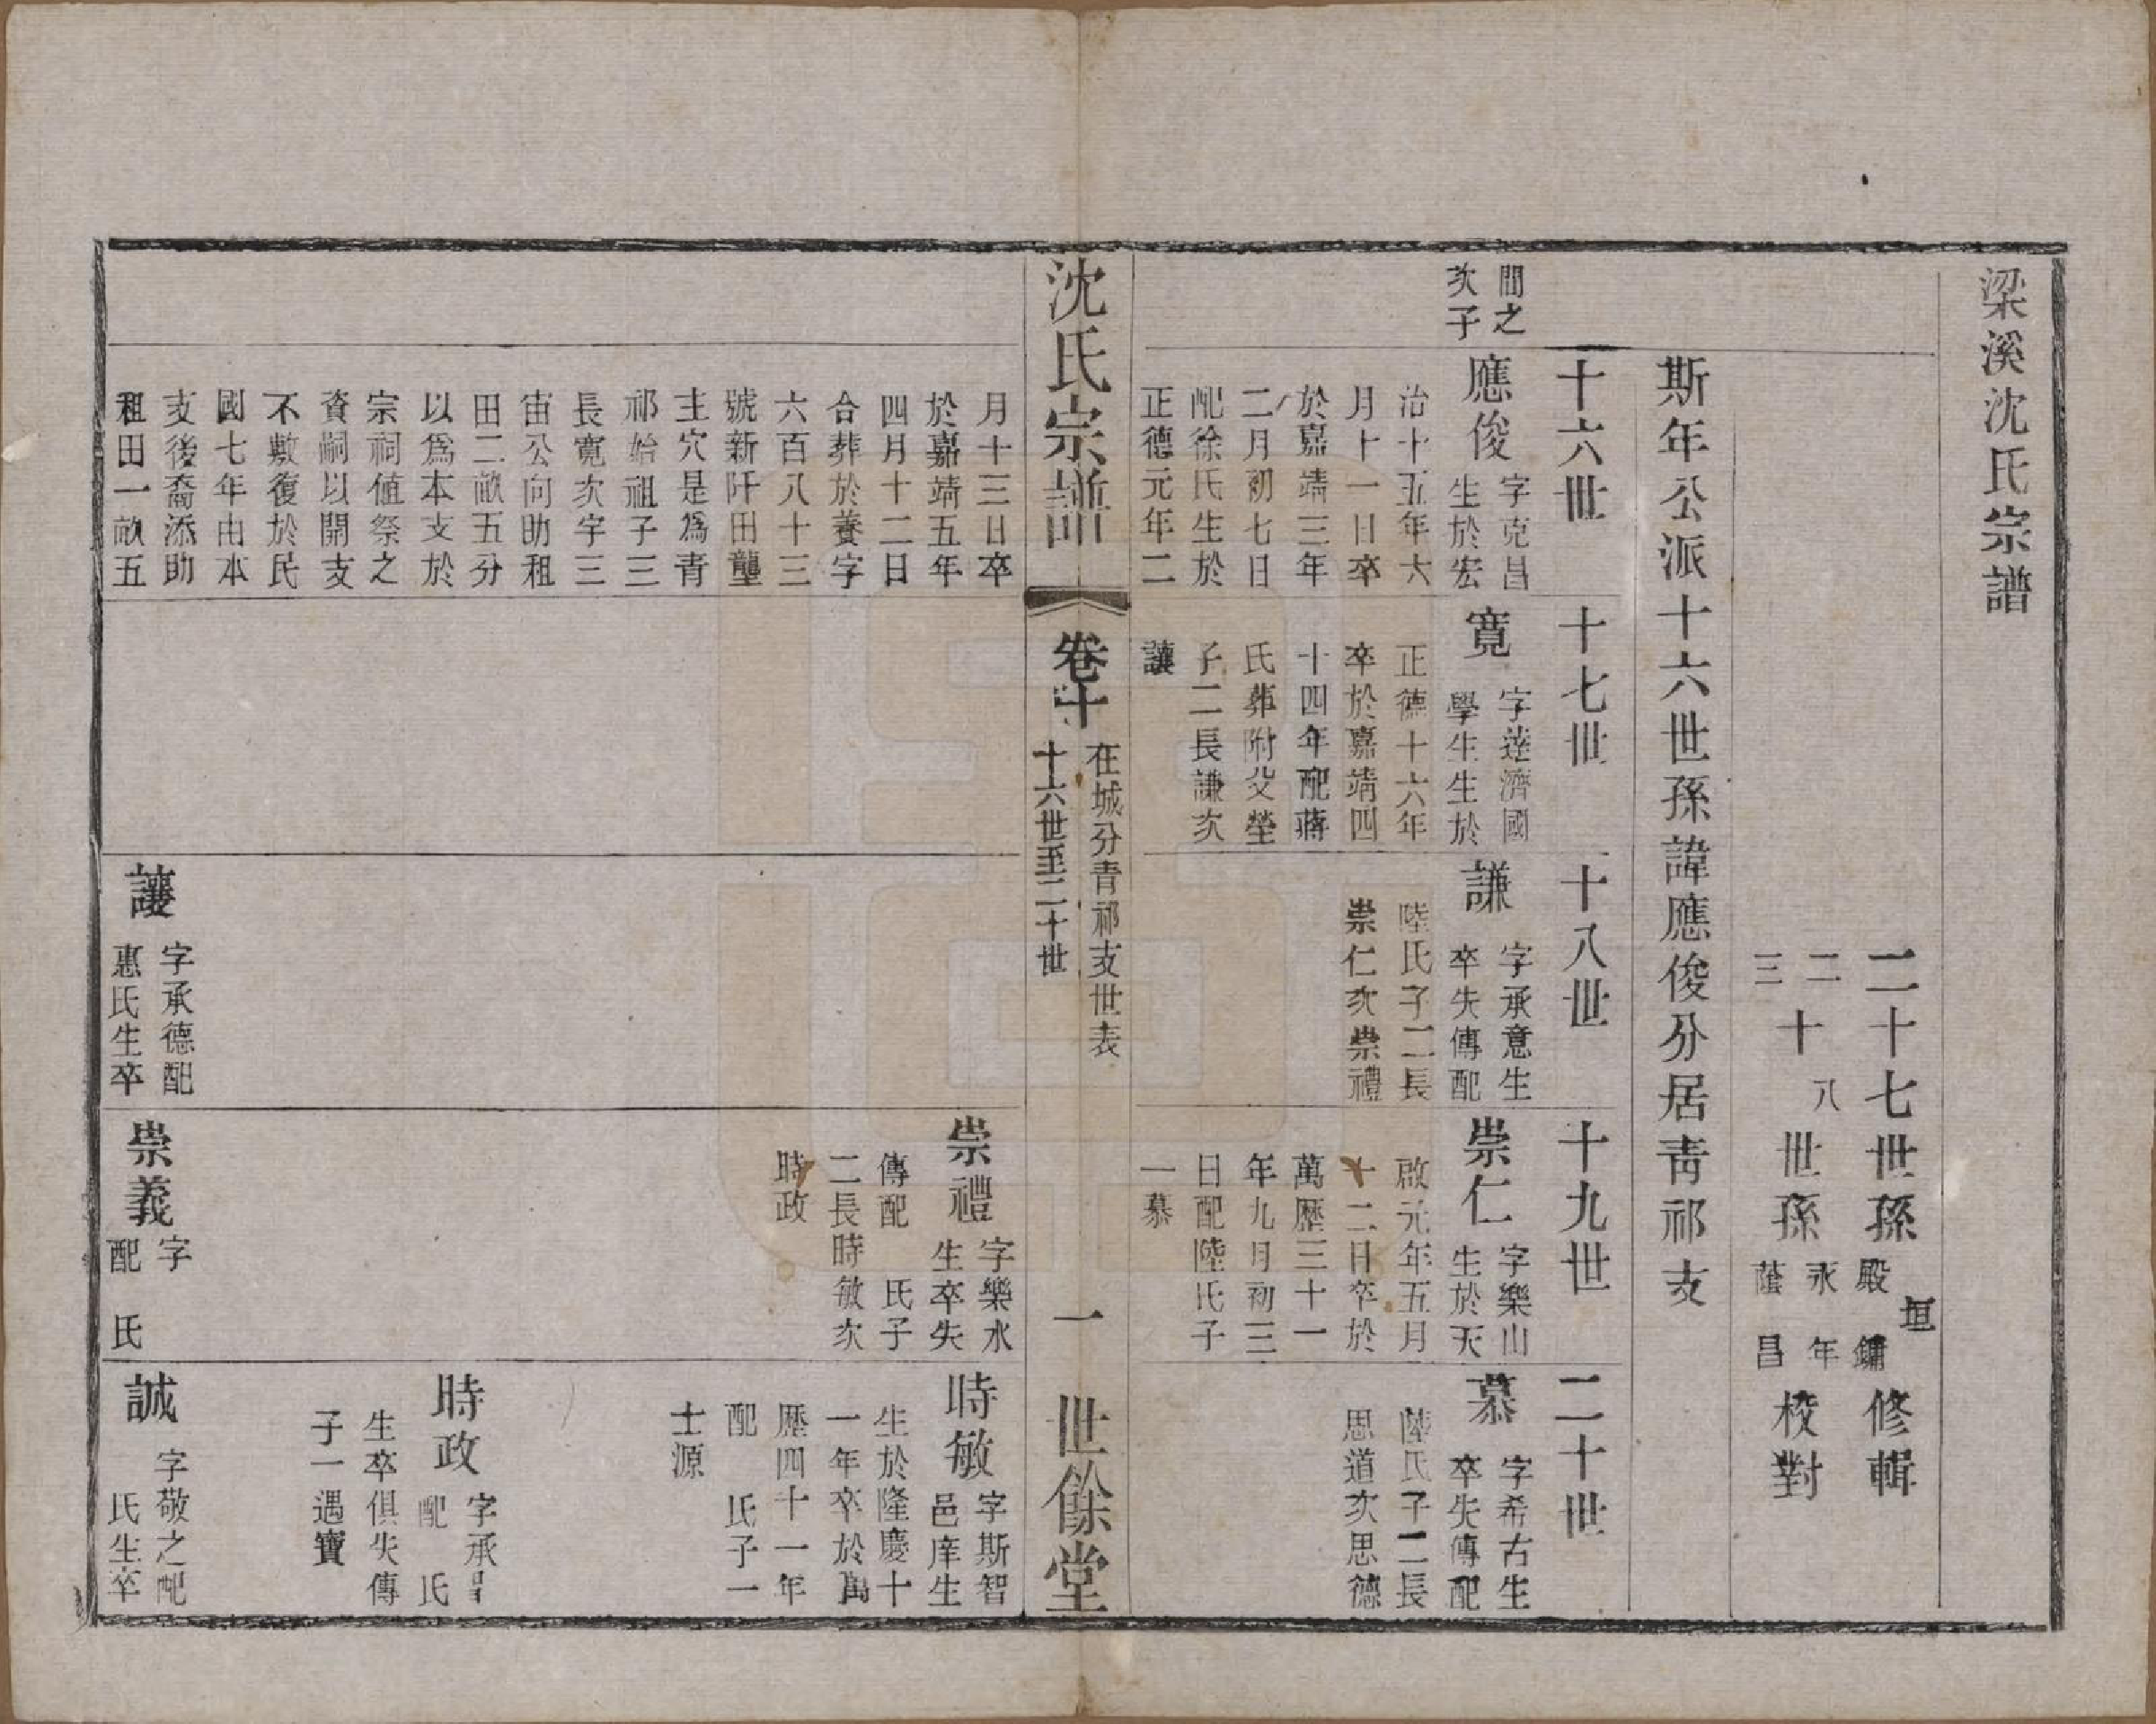 梁溪沈氏宗譜
二十七世孫 殿垣鏞 修輯
二十八世孫 永年
三十世孫 蔭昌 校對
斯年公派十六世孫諱應俊分居青祁支
十六世
十七世
十八世
十九世
二十世
間之
次子
應俊
字克昌
生於宏
治十五年六
月十一日卒
於嘉靖三年
二月初七日
配徐氏生於
正德元年二
寬
字達濟國
學生生於
正德十六年
卒於嘉靖四
十四年配蔣
氏葬附父塋
子二長謙次
讓
謙
字承意生
卒失傳配
陸氏子二長
崇仁次崇禮
崇仁
字樂山
生於天
啟元年五月
十二日卒於
萬歷三十一
年九月初三
日配陸氏子
一慕
慕
字希古生
卒失傳配
陸氏子二長
思道次思德
沈氏宗譜
卷十
在城分青祁支世表
十六世至二十世
一
世餘堂
月十三日卒
於嘉靖五年
四月十二日
合葬於養字
六百八十三
號新阡田壟
主穴是為青
祁始祖子三
長寬次字三
宙公向助租
田二畝五分
以為本支於
宗祠值祭之
資嗣以開支
不敷復於民
國七年由本
支後裔添助
租田一畝五
讓
字承德配
惠氏生卒
崇禮
字樂水
生卒失
傳配 氏子
二長時敏次
時政
崇義
字
配 氏
時敏
字斯智
邑庠生
生於隆慶十
一年卒於萬
歷四十一年
配 氏子一
士源
時政
字承昌
配 氏
生卒俱失傳
子一遇寶
誠
字敬之配
氏生卒